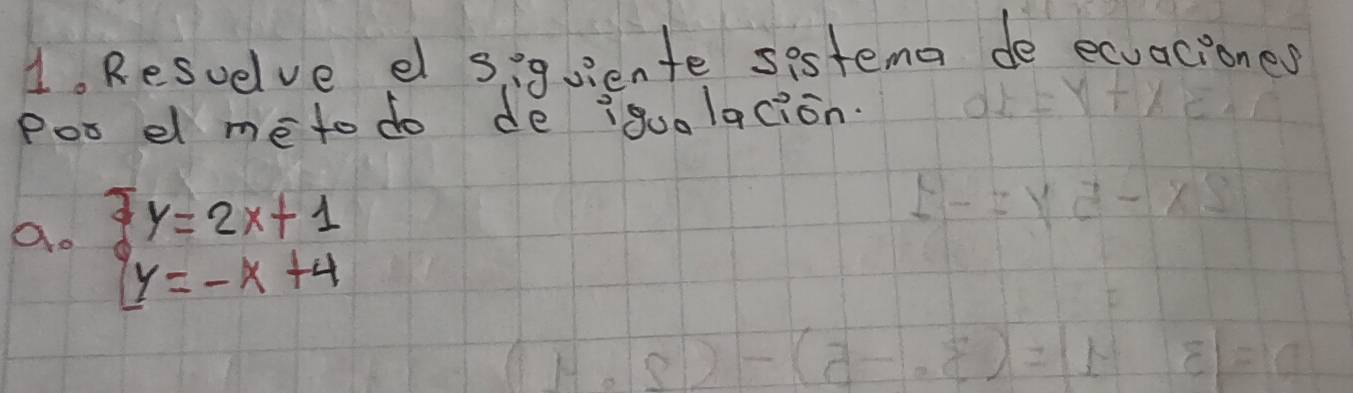 1. Resuelve el siguiente sistema de ecuaciones
Por el método de igualación.
a. { y = 2x + 1
y = -x + 4